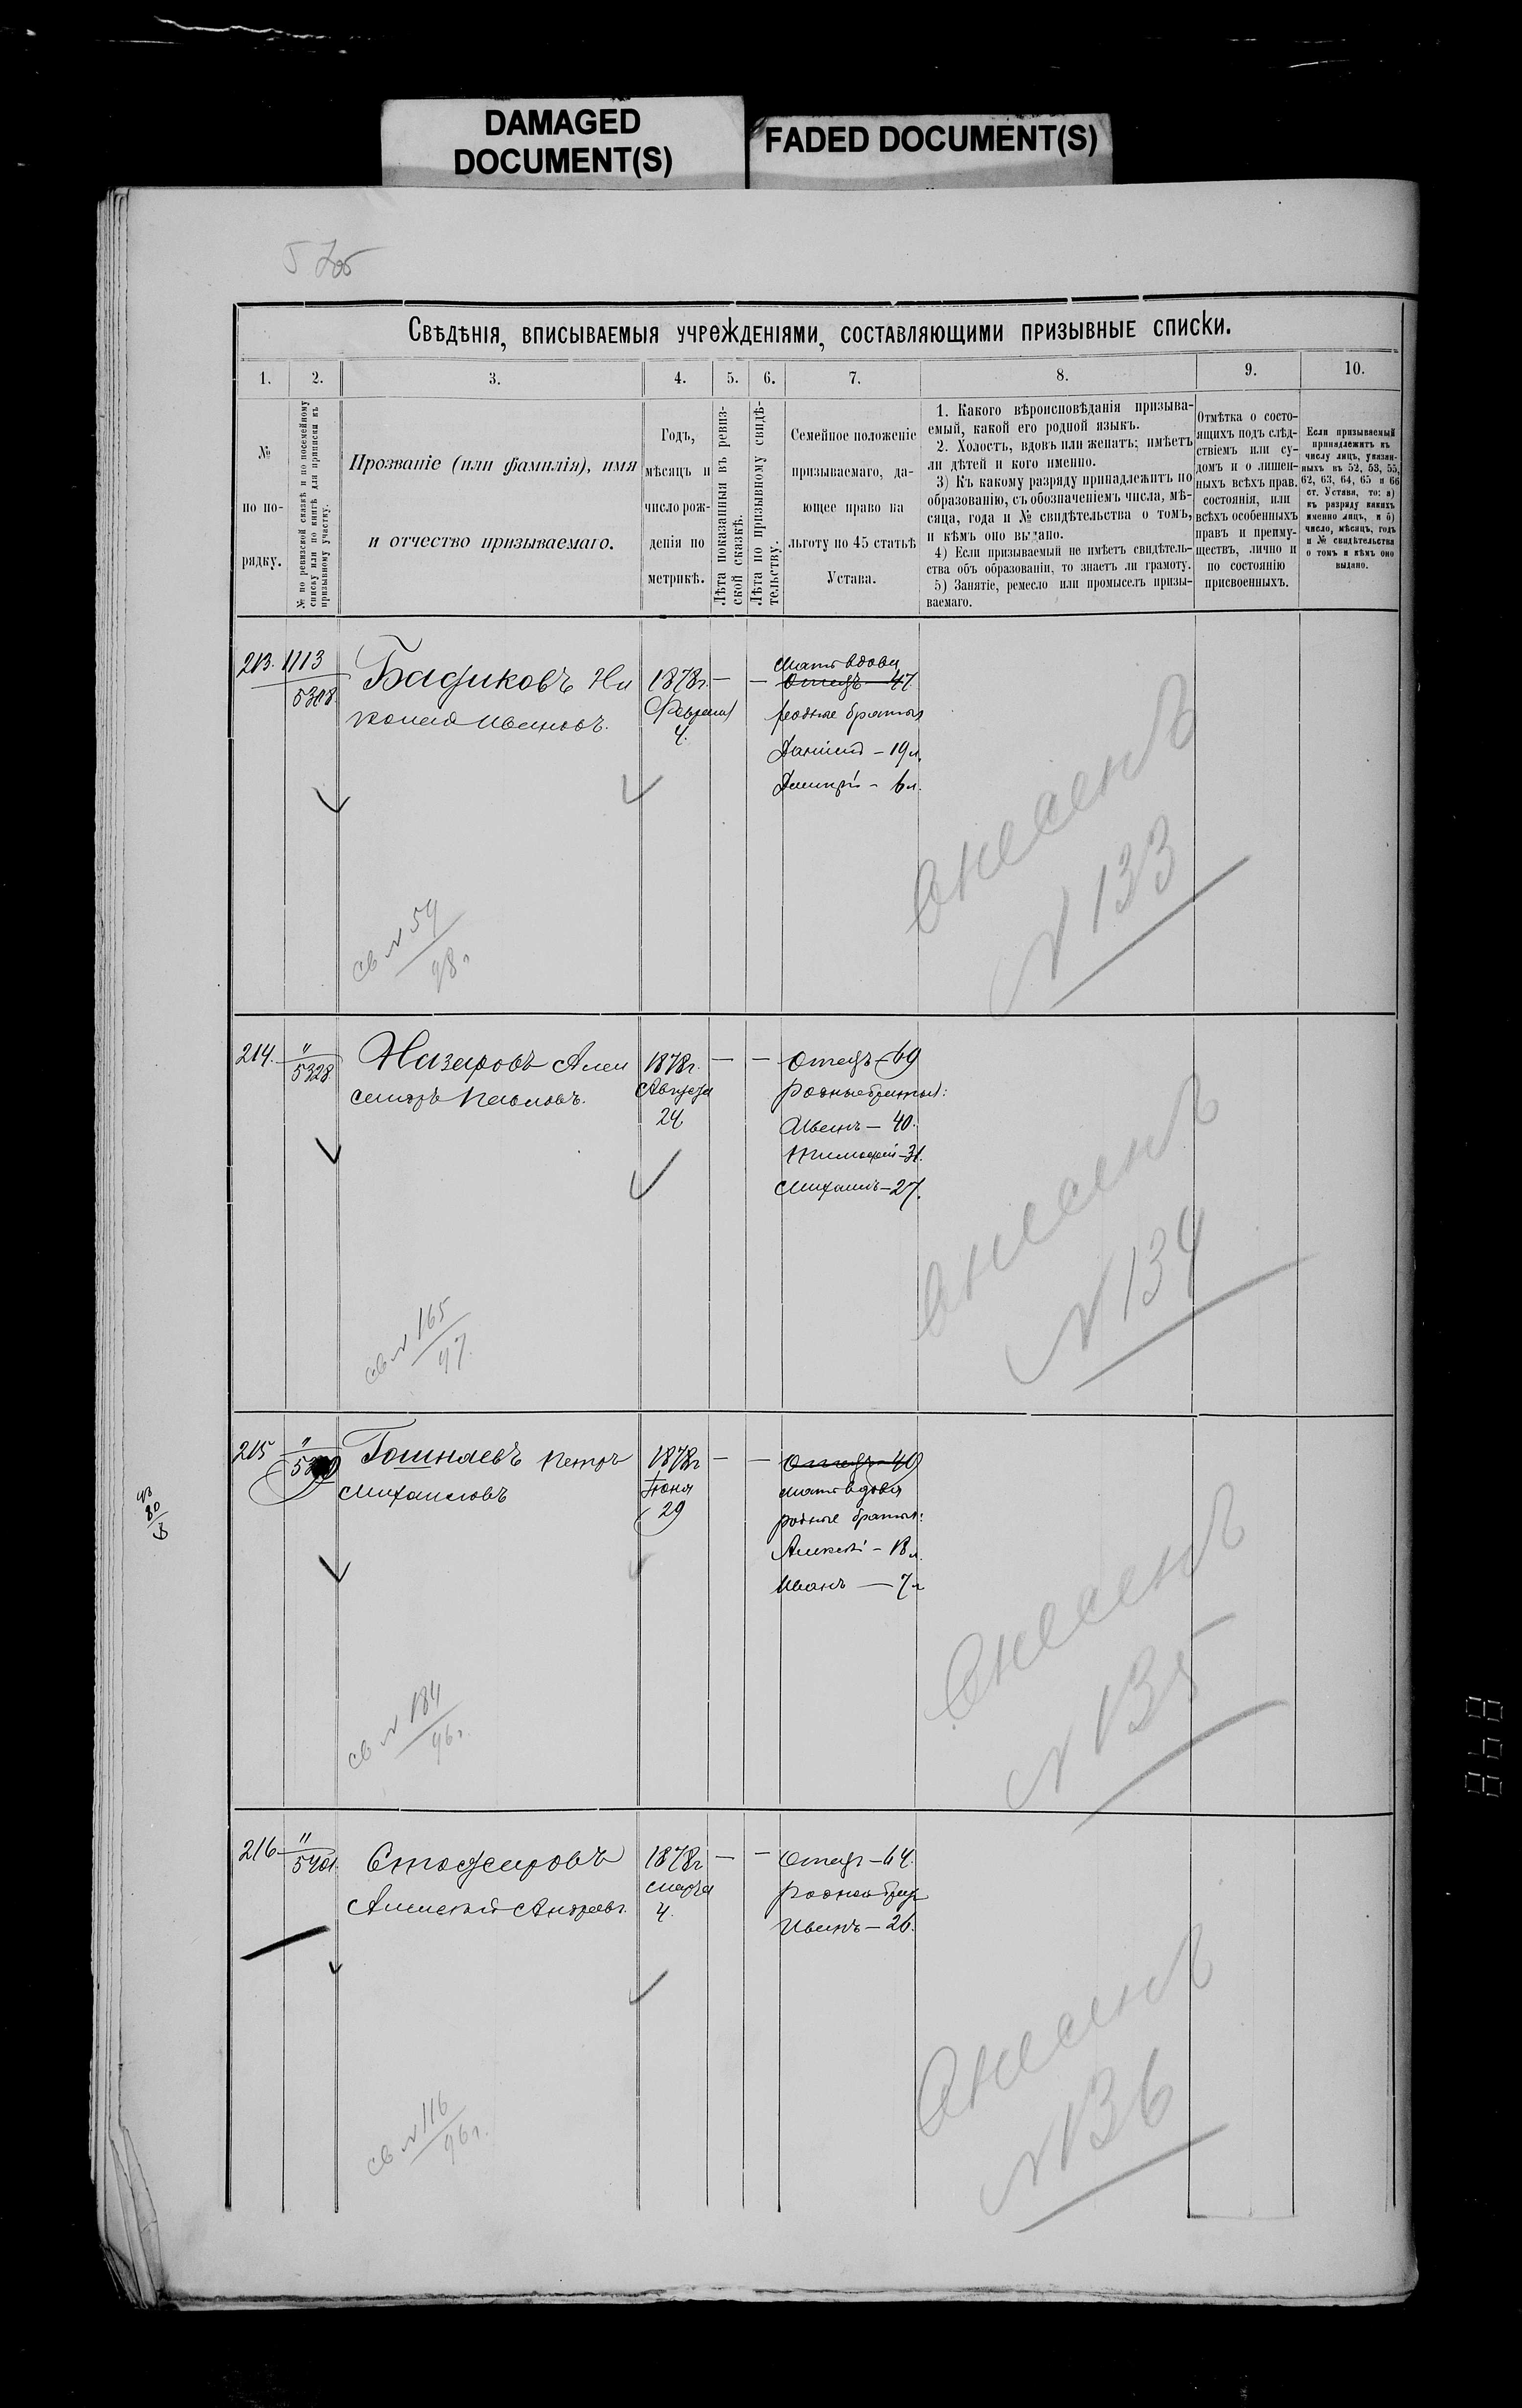 DAMAGED
DOCUMENT(S)
FADED DOCUMENT(S)
Свѣдѣнія, вписываемыя учрежденіями, составляющими призывные списки.
1. 2. 3. 4. 5. 6. 7. 8. 9. 10.
№
по по-
рядку.
№ по ревизской сказкѣ и по посемейному
списку или по книгѣ для приписки къ
призывному участку.
Прозваніе (или фамилія), имя
и отчество призываемаго.
Годъ,
мѣсяцъ и
число рож-
денія по
метрикѣ.
Лѣта показанныя въ ревиз-
ской сказкѣ.
Лѣта по призывному свидѣ-
тельству.
Семейное положеніе
призываемаго, да-
ющее право на
льготу по 45 статьѣ
Устава.
1. Какого вѣроисповѣданія призыва-
емый, какой его родной языкъ.
2. Холостъ, вдовъ или женатъ; имѣетъ
ли дѣтей и кого именно.
3) Къ какому разряду принадлежитъ по
образованію, съ обозначеніемъ числа, мѣ-
сяца, года и № свидѣтельства о томъ,
и кѣмъ оно выдано.
4) Если призываемый не имѣетъ свидѣтель-
ства объ образованіи, то знаетъ ли грамоту.
5) Занятіе, ремесло или промыселъ призы-
ваемаго.
Отмѣтка о состо-
ящихъ подъ слѣд-
ствіемъ или су-
домъ и о лишен-
ныхъ всѣхъ прав.
состоянія, или
всѣхъ особенныхъ
правъ и преиму-
ществъ, лично и
по состоянію
присвоенныхъ.
Если призываемый
принадлежитъ къ
числу лицъ, указан-
ныхъ въ 52, 53, 55,
62, 63, 64, 65 и 66
ст. Устава, то: а)
къ разряду какихъ
именно лицъ, и б)
число, мѣсяцъ, годъ
и № свидѣтельства
о томъ и кѣмъ оно
выдано.
213. 1113
5308.
Бадиковъ Ни
колай Ивановъ.
1878г. — —
Февраля
4.
Мать вдова
Отецъ - 47
родные братья
Даніилъ - 19 л.
Дмитрій - 6 л.
св № 59
98 г
внесенъ
№ 133
214. "
5328
Назаровъ Алек
сандръ Павловъ.
1878г. — —
Августа
24
Отецъ - 69
Родные братья:
Иванъ — 40.
Тимофей - 31.
Михаилъ - 27.
св № 165
97.
внесенъ
№ 134
215 "
Гошнаевъ Петръ
Михаиловъ
1878г — —
Іюня
29
Отецъ - 49
мать вдова
родные братья:
Алексѣй - 18 л.
Иванъ — 7 л
св № 184
96 г.
Внесенъ
№ 135
216 "
5401.
Алексѣй Андреевъ.
1878г — —
Марта
4.
Отецъ - 64.
Родной братъ
Иванъ — 26.
св № 116
96 г.
Внесенъ
№ 136
848